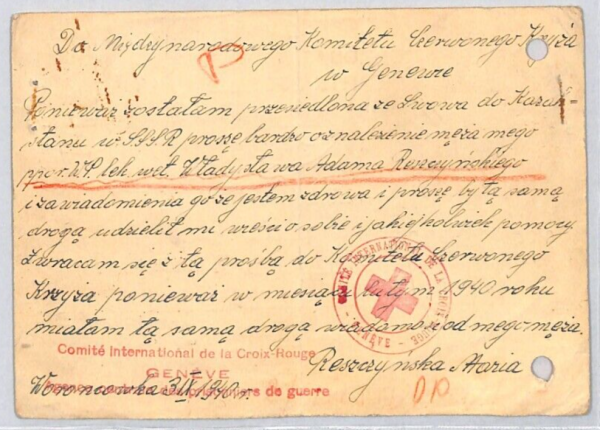 Do Międzynarodowego Komitetu Czerwonego Krzyża
w Genewie
Ponieważ zostałam przesiedlona ze Lwowa do Kazak-
stanu w S.S.S.R proszę bardzo o znalezienie męża mego
ppor. W.P. lek. wet. Władysława Adama Reszczyńskiego
i zawiadomienia go że jestem zdrowa i proszę by tą samą
drogą udzielił mi wieści o sobie i jakiejkolwiek pomocy
Zwracam się z tą prośbą do Komitetu Czerwonego
Krzyża ponieważ w miesiącu lutym 1940 roku
miałam tą samą drogą wiadomość od mego męża.
COMITÉ INTERNATIONAL DE LA CROIX-ROUGE - GENÈVE -
Reszczyńska Maria
Comité International de la Croix-Rouge
GENÈVE
prisonniers de guerre
Woroncowka 1940 r.